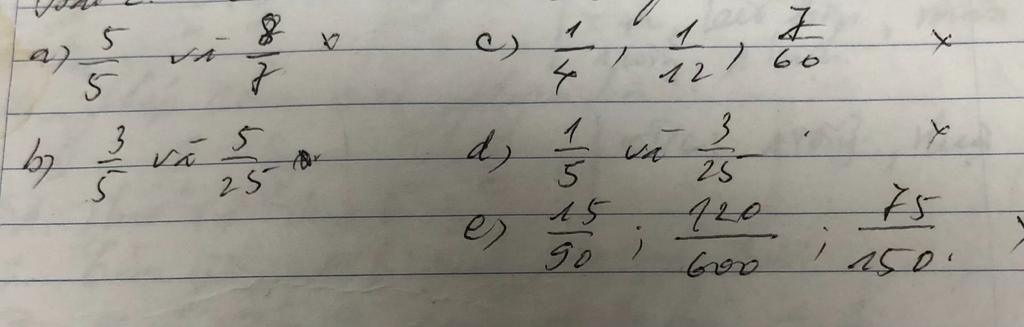 a) 5/5 và 8/7 x c) 1/4, 1/12, 7/60 x
b) 3/5 và 5/25 d) 1/5 và 3/25 . x
e) 15/90 ; 120/600 ; 75/150.